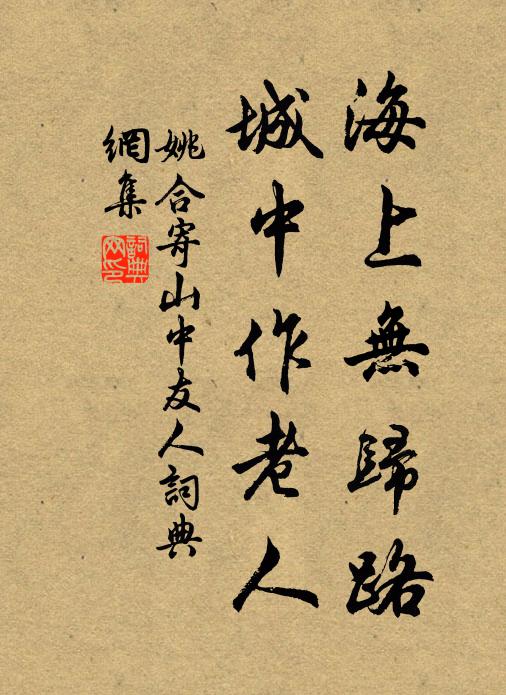 海上無歸路
城中作老人
姚合寄山中友人詞典
網集
詞典
网印